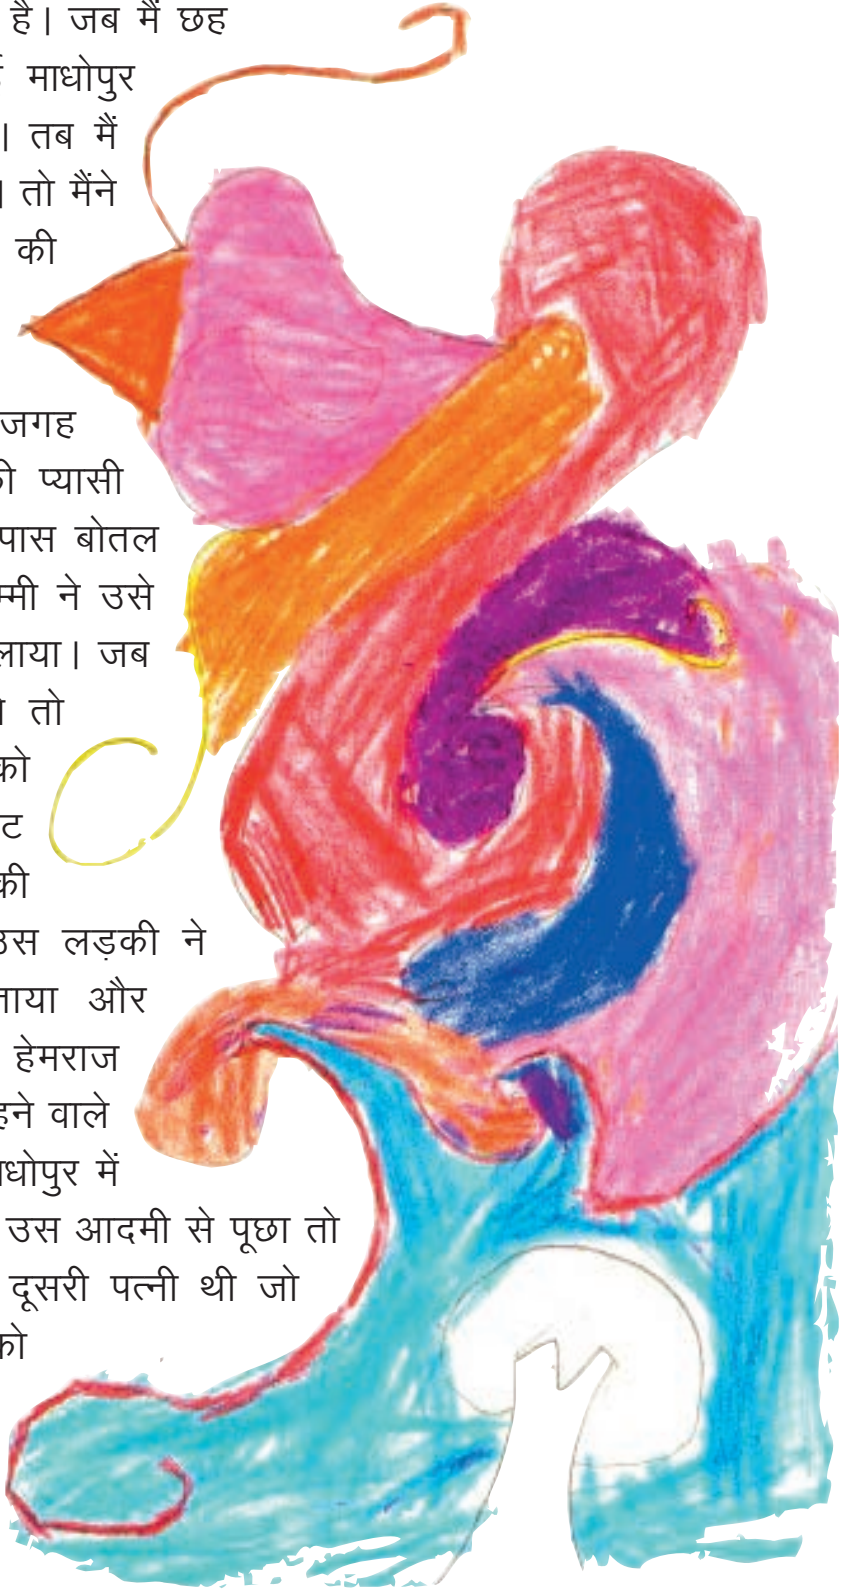 है। जब मैं छह
माधोपुर
। तब मैं
। तो मैंने
की
जगह
प्यासी
पास बोतल
म्मी ने उसे
लाया। जब
तो
को
ट
की
उस लड़की ने
ताया और
हेमराज
हने वाले
माधोपुर में
उस आदमी से पूछा तो
दूसरी पत्नी थी जो
को